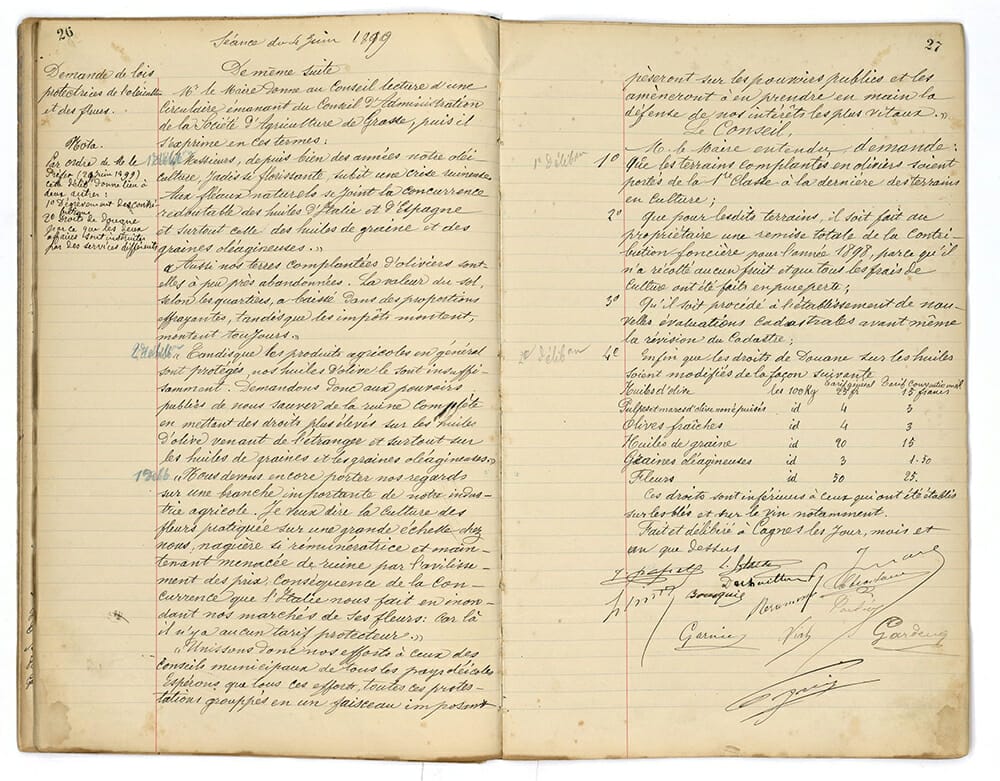 26
Séance du 4 Juin 1899
Demande de lois
protectrices de l'oléiculture
et des fleurs.
Nota.
Par ordre de M. le
Préfet (29 juin 1899)
cette délib. donne lieu à
deux autres:
1° Dégrèvement des contri
butions
2° Droits de Douane
parce que les deux
affaires sont instruites
par des services différents
De même suite
M. le Maire donne au Conseil lecture d'une
Circulaire émanant du Conseil d'Administration
de la Société d'Agriculture de Grasse, puis il
s'exprime en ces termes:
1e délib
"Messieurs, depuis bien des années notre oléi-
culture, jadis si florissante, subit une crise ruineuse
Aux fléaux naturels se joint la concurrence
redoutable des huiles d'Italie et d'Espagne
et surtout celle des huiles de graine et des
graines oléagineuses."
"Aussi nos terres complantées d'oliviers sont-
elles à peu près abandonnées. La valeur du sol,
selon les quartiers, a baissé dans des proportions
effrayantes, tandis que les impôts montent,
montent toujours."
2e délib
"Tandis que les produits agricoles en général
sont protégés, nos huiles d'olive le sont insuffi
samment. Demandons donc aux pouvoirs
publics de nous sauver de la ruine complète
en mettant des droits plus élevés sur les huiles
d'olive venant de l'étranger et surtout sur
les huiles de graines et les graines oléagineuses."
1e délib
"Nous devons encore porter nos regards
sur une branche importante de notre indus-
trie agricole. Je veux dire la culture des
fleurs pratiquée sur une grande échelle chez
nous, naguère si rémunératrice et main-
tenant menacée de ruine par l'avilisse-
ment des prix, conséquence de la con-
currence que l'Italie nous fait en inon-
dant nos marchés de ses fleurs: car là
il n'y a aucun tarif protecteur."
"Unissons donc nos efforts à ceux des
Conseils municipaux de tous les pays oléicoles
Espérons que tous ces efforts, toutes ces protes-
tations grouppés en un faisceau imposant
27
pèseront sur les pouvoirs publics et les
amèneront à en prendre en main la
défense de nos intérêts les plus vitaux."
Le Conseil,
1e délibon
1° M. le Maire entendu, demande:
Que les terrains complantés en oliviers soient
portés de la 1re Classe à la dernière des terrains
en Culture;
2° Que pour lesdits terrains, il soit fait au
propriétaire une remise totale de la Contri-
bution foncière pour l'année 1898, parce qu'il
n'a récolté aucun fruit et que tous les frais de
Culture ont été faits en pure perte;
3° Qu'il soit procédé à l'établissement de nou-
velles évaluations Cadastrales avant même
la révision du Cadastre;
2e délibon
4e Enfin que les droits de Douane sur les huiles
soient modifiés de la façon suivante
Tarif général Tarif conventionnel
Huiles d'olive les 100 Kg 25 fr 15 francs
Pulpes et marcs d'olive non épuisés id 4 3
Olives fraîches id 4 3
Huiles de graine id 20 15
Graines oléagineuses id 3 1.50
Fleurs id 50 25.
Ces droits sont inférieurs à ceux qui ont été établis
sur les blés et sur le vin notamment.
Fait et délibéré à Cagnes les jour, mois et
an que dessus